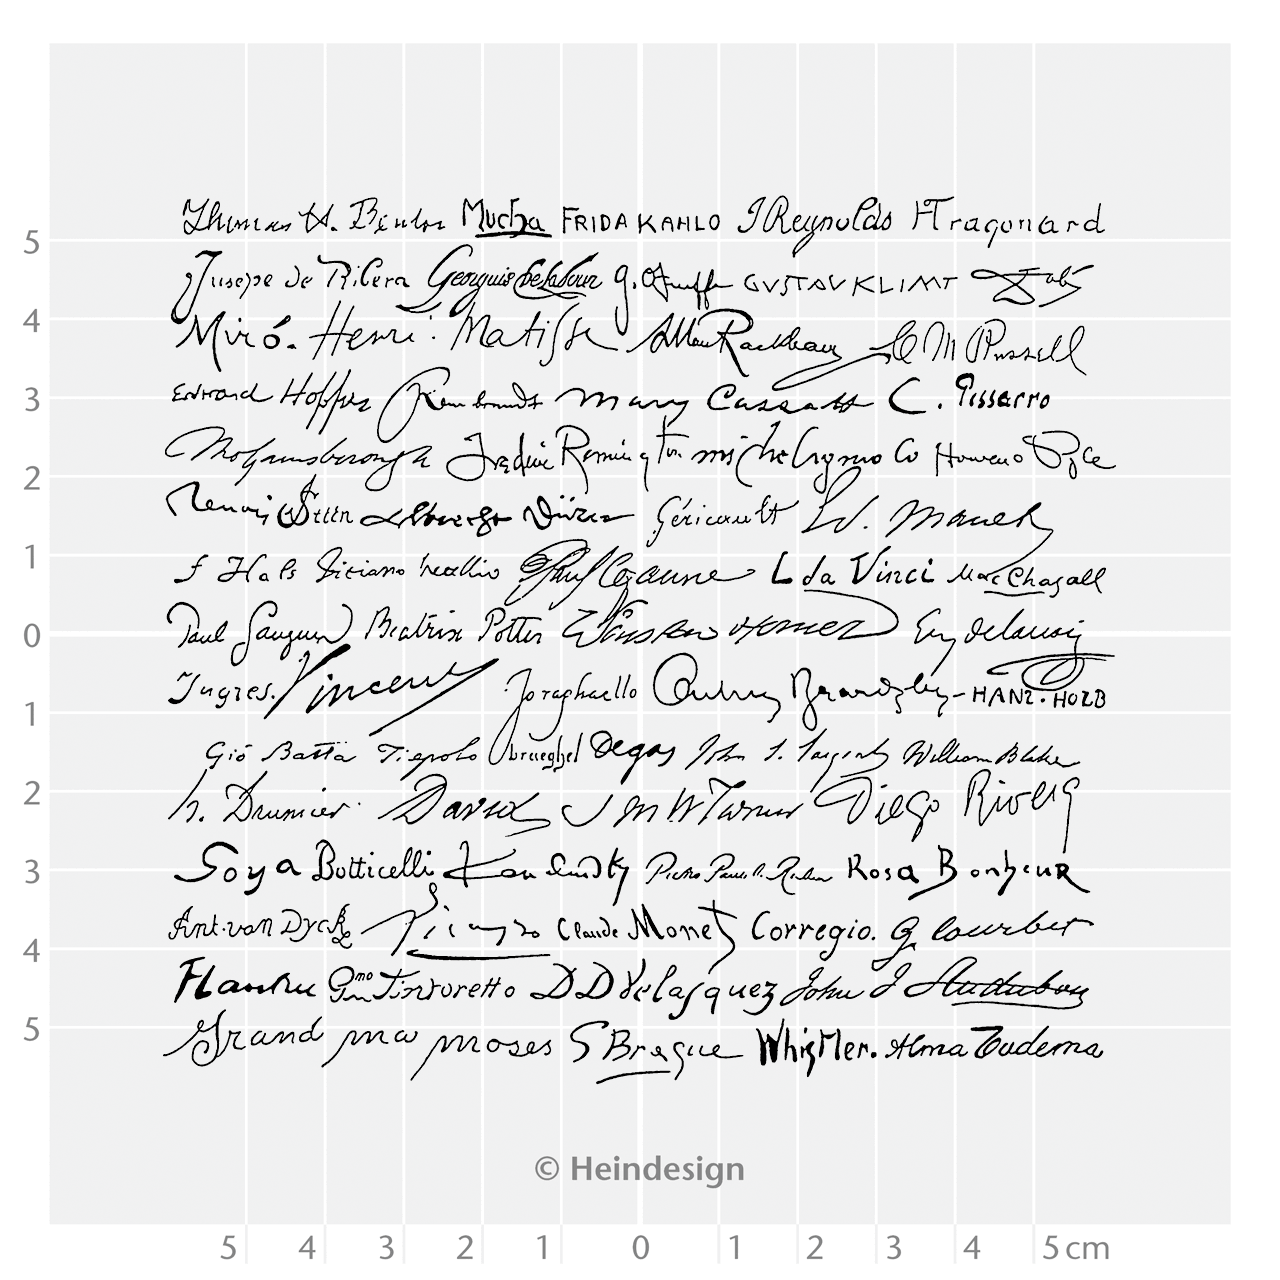 Thomas H. Benton Mucha FRIDA KAHLO J Reynolds Fragonard
5 Jusepe de Ribera Georguis De la Tour GUSTAV KLIMT Dalí
4 Miró. Henri. Matisse Arthur Rackham C M Russell
3 Edward Hopper Rembrandt Mary Cassatt C. Pissarro
Gainsborough Frederic Remington
2 Renoir JSteen Albrecht Dürer Géricault Ed. Manet
1 f Hals Titiano Vecellio Paul Cezanne L da Vinci Marc Chagall
0 Paul Gauguin Beatrix Potter Winslow Homer Eug Delacroix
Ingres. Vincent HANS. HOLB
1
Gio Batta Tiepolo brueghel Degas John S. Sargent William Blake
2 h. Daumier David J M W Turner Diego Rivera
3 Goya Botticelli Kandinsky Pietro Pauolo Ruben Rosa Bonheur
Ant. van Dyck Picasso Claude Monet Corregio. G. Courbet
4
Tintoretto D D Velasquez John J Audubon
5 Grand ma moses G Braque Whistler. Alma Tadema
© Heindesign
5 4 3 2 1 0 1 2 3 4 5 cm